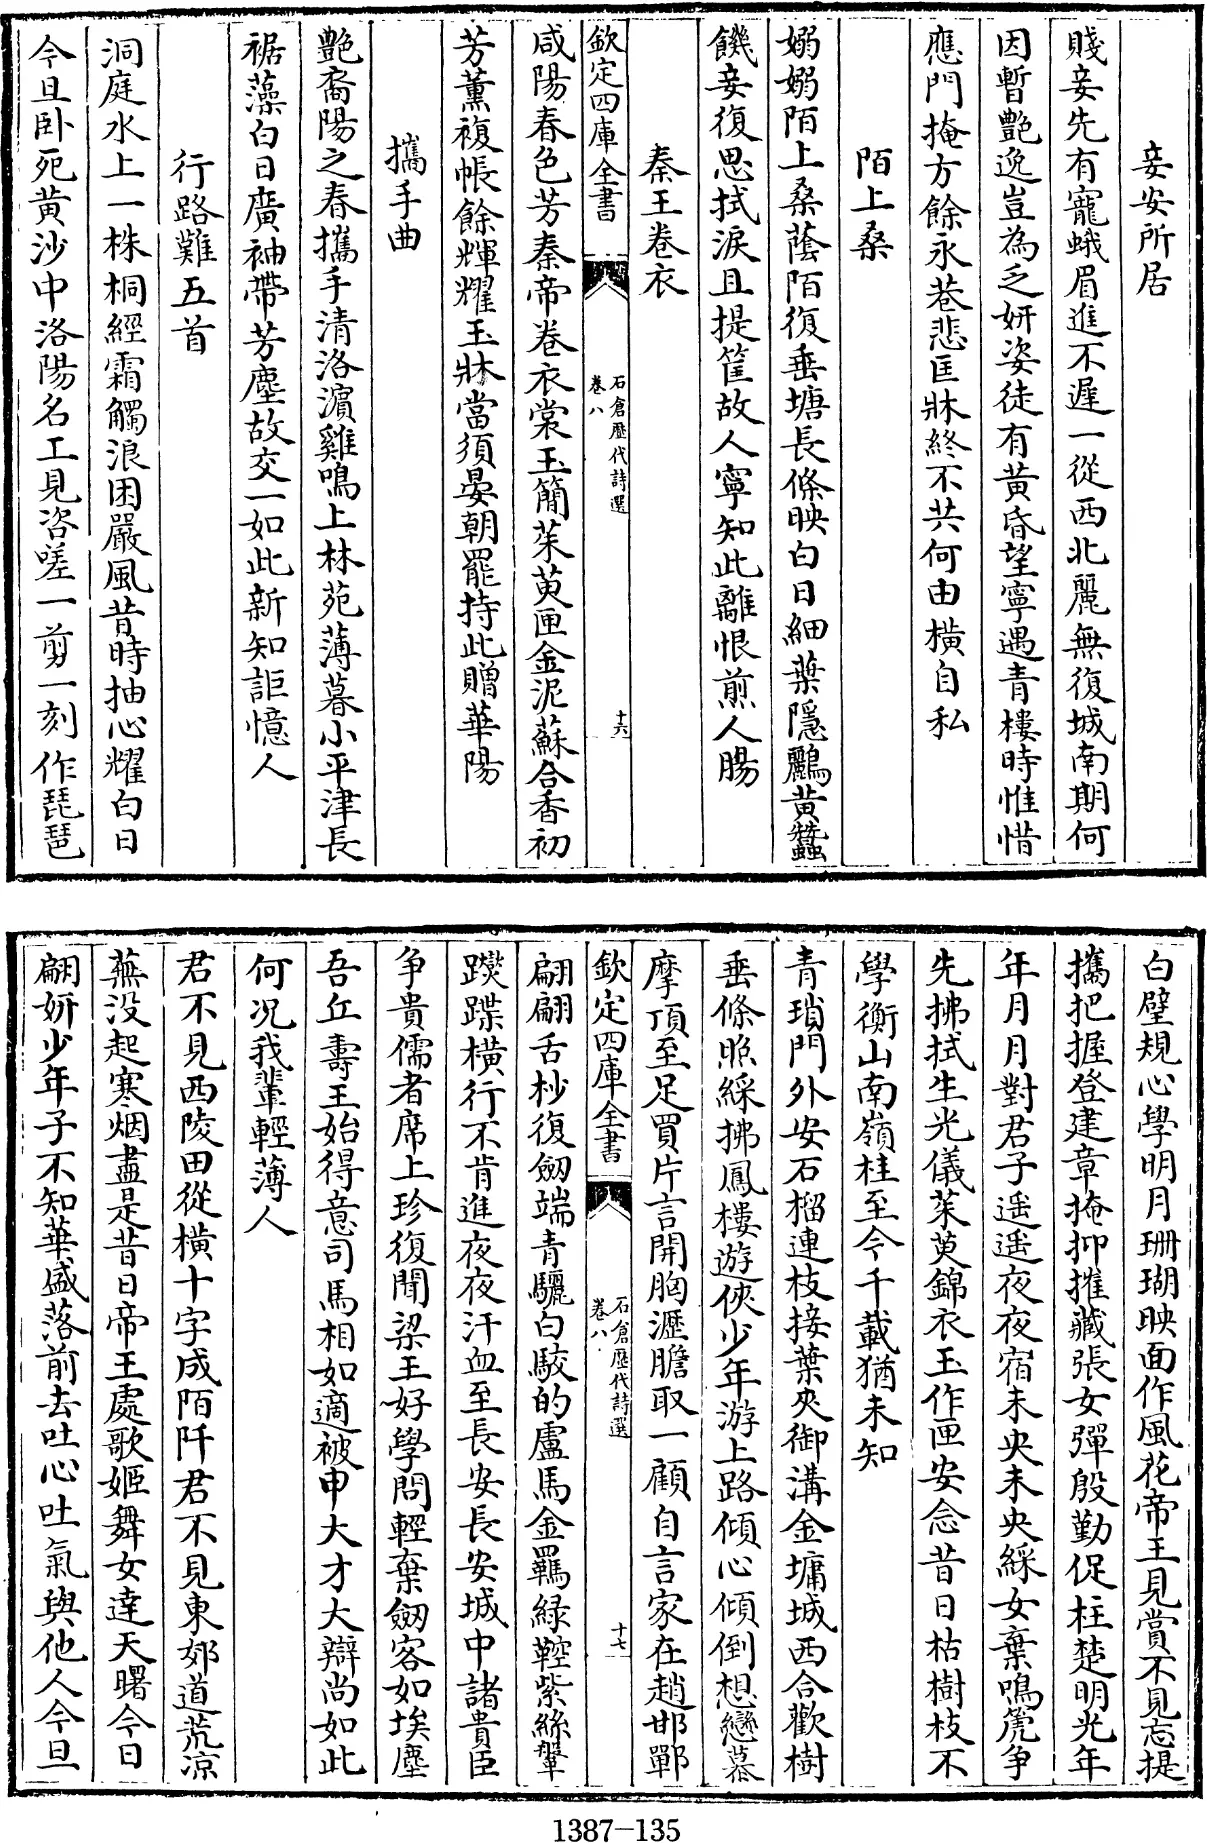 妾安所居
賤妾先有寵蛾眉進不遲一從西北麗無復城南期何
因暫艷逸豈為乏妍姿徒有黄昏望寧遇青樓時惟惜
應門掩方餘永巷悲匡牀終不共何由横自私
陌上桑
嫋嫋陌上桑蔭陌復垂塘長條映白日細葉隱鸝黄蠶
饑妾復思拭淚且提筐故人寧知此離恨煎人腸
秦王卷衣
欽定四庫全書
石倉歴代詩選
卷八
十六
咸陽春色芳秦帝卷衣裳玉簡茱萸匣金泥蘇合香初
芳薰複帳餘輝耀玉牀當須晏朝罷持此贈華陽
攜手曲
艷裔陽之春攜手清洛濱雞鳴上林苑薄暮小平津長
裾藻白日廣袖帶芳塵故交一如此新知詎憶人
行路難五首
洞庭水上一株桐經霜觸浪困嚴風昔時抽心耀白日
今旦卧死黄沙中洛陽名工見咨嗟一剪一刻作琵琶
白壁規心學明月珊瑚映面作風花帝王見賞不見忘提
攜把握登建章掩抑摧藏張女彈殷勤促柱楚明光年
年月月對君子遥遥夜夜宿未央未央綵女棄鳴箎争
先拂拭生光儀茱萸錦衣玉作匣安念昔日枯樹枝不
學衡山南嶺桂至今千載猶未知
青瑣門外安石榴連枝接葉夾御溝金墉城西合歡樹
垂條照綵拂鳳樓遊俠少年游上路傾心傾倒想戀慕
摩頂至足買片言開胸瀝膽取一顧自言家在趙邯鄲
欽定四庫全書
石倉歴代詩選
卷八
十七
翩翩舌杪復劒端青驪白駮的盧馬金羈緑鞚紫絲鞶
蹀躞横行不肯進夜夜汗血至長安長安城中諸貴臣
争貴儒者席上珍復聞梁王好學問輕棄劒客如埃塵
吾丘壽王始得意司馬相如適被申大才大辯尚如此
何况我輩輕薄人
君不見西陵田從横十字成陌阡君不見東郊道荒凉
蕪没起寒烟盡是昔日帝王處歌姬舞女達天曙今日
翩妍少年子不知華盛落前去吐心吐氣與他人今旦
1387-135